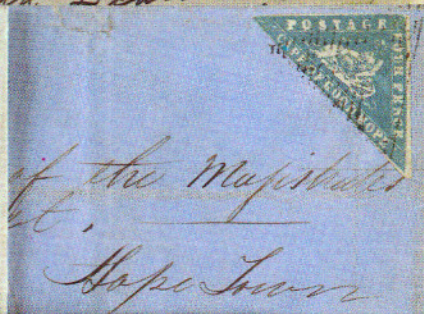 POSTAGE
FOUR PENCE
CAPE OF GOOD HOPE
of the Magistrate
Hope Town